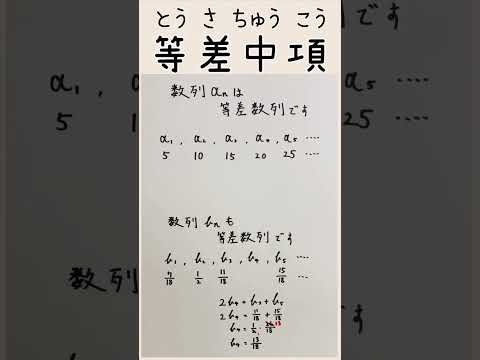 とう さ ちゅう こう
等差中項
数列 aₙ は
等差数列です
a₁ , a₂ , a₃ , a₄ , a₅ ‥‥
5 10 15 20 25 ‥‥
数列 bₙ も
等差数列です
b₁ , b₂ , b₃ , b₄ , b₅ ‥‥
7/18 1/2 11/18 15/18 ‥‥
2b₄ = b₃ + b₅
2b₄ = 11/18 + 15/18
b₄ = 1/2 · 26/18 13
b₄ = 13/18